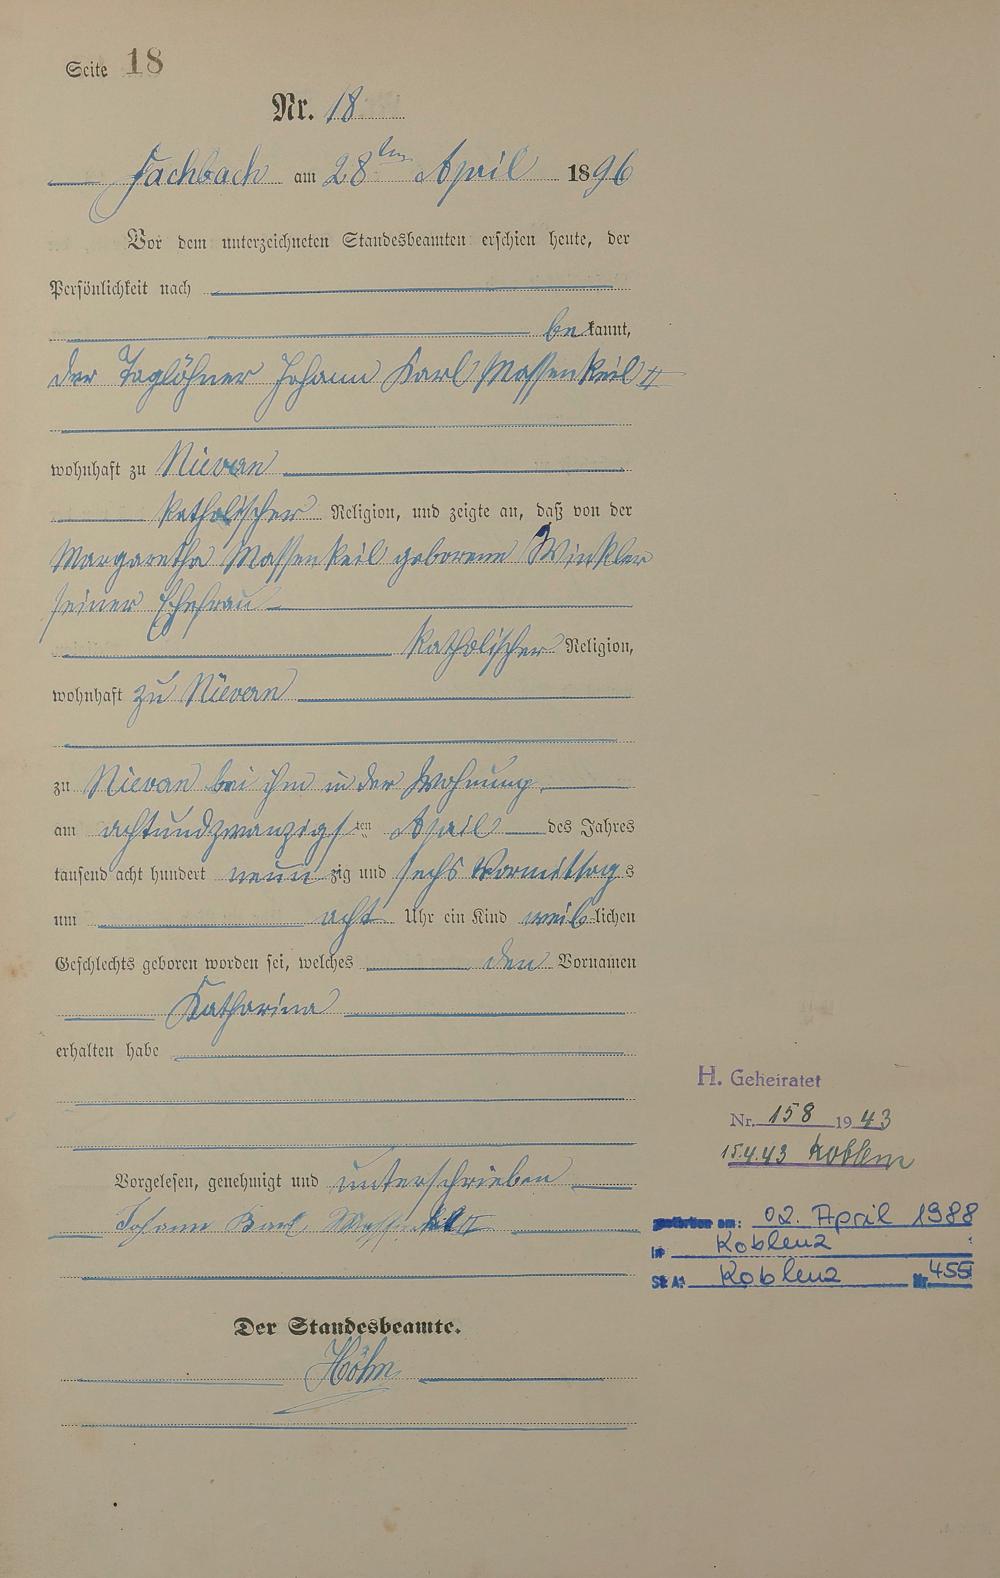 Seite 18
Nr. 18
Fachbach am 28ten April 1896
Vor dem unterzeichneten Standesbeamten erschien heute, der
Persönlichkeit nach
bekannt,
der Taglöhner Johann Karl Massenkeil II
wohnhaft zu Nievern
katholischer Religion, und zeigte an, daß von der
Margaretha Massenkeil geborene Winkler
seiner Ehefrau
katholischer Religion,
wohnhaft zu Nievern
zu Nievern bei ihm in der Wohnung
am achtundzwanzigsten April des Jahres
tausend acht hundert neunzig und sechs Vormittags
um acht Uhr ein Kind weiblichen
Geschlechts geboren worden sei, welches den Vornamen
Katharina
erhalten habe
H. Geheiratet
Nr. 158 1943
15.4.43 Koblenz
Vorgelesen, genehmigt und unterschrieben
Johann Karl Massenkeil II
gestorben am: 02. April 1988
in Koblenz
St A: Koblenz Nr. 455
Der Standesbeamte.
Höhn